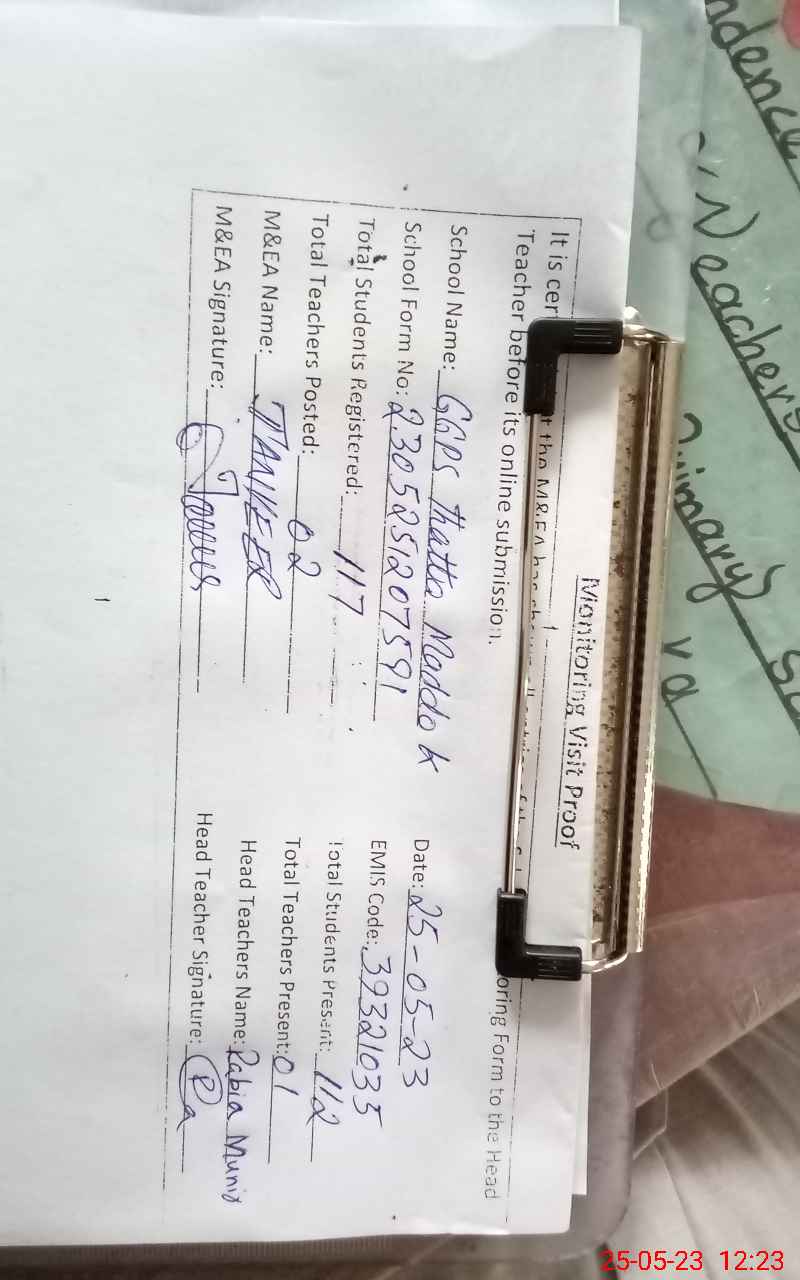 Monitoring Visit Proof
It is cer t the M&EA has oring Form to the Head
Teacher before its online submission.
School Name: GGPS Thatta Maddo k
Date: 25-05-23
School Form No: 2305251207591
EMIS Code: 39321035
Total Students Registered: 117
Total Students Present: 112
Total Teachers Posted: 02
Total Teachers Present: 01
M&EA Name: TANVEER
Head Teachers Name: Rabia Munir
M&EA Signature:
Head Teacher Signature: Ra
ndence
Teachers
Primary
25-05-23 12:23